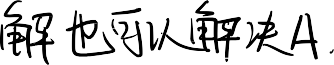 解也可以解决A.